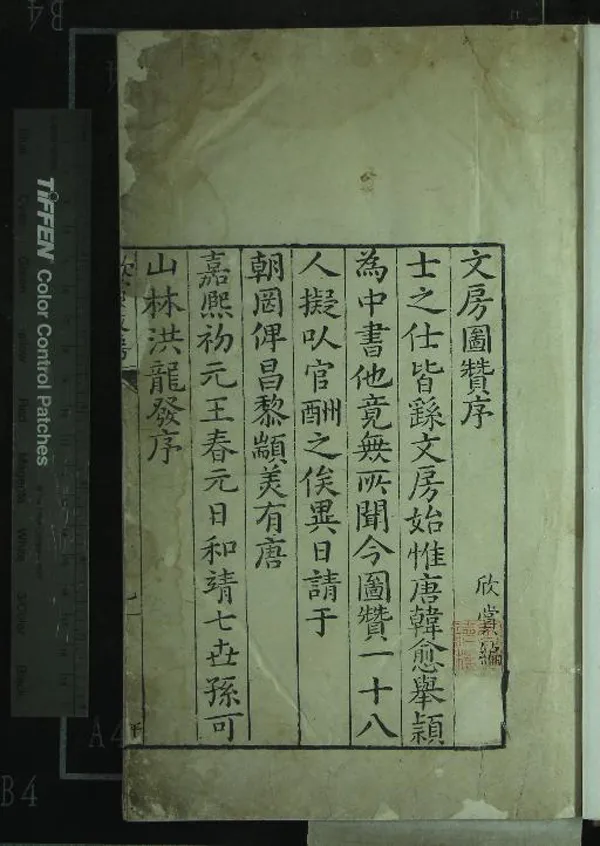 文房圖贊序
欣賞編
士之仕皆繇文房始惟唐韓愈舉穎
為中書他竟無所聞今圖贊一十八
人擬㕥官酬之俟異日請于
朝罔俾昌黎顓羙有唐
嘉熈初元王春元日和靖七世孫可
山林洪龍發序
TIFFEN Color Control Patches
B4
A4
B4